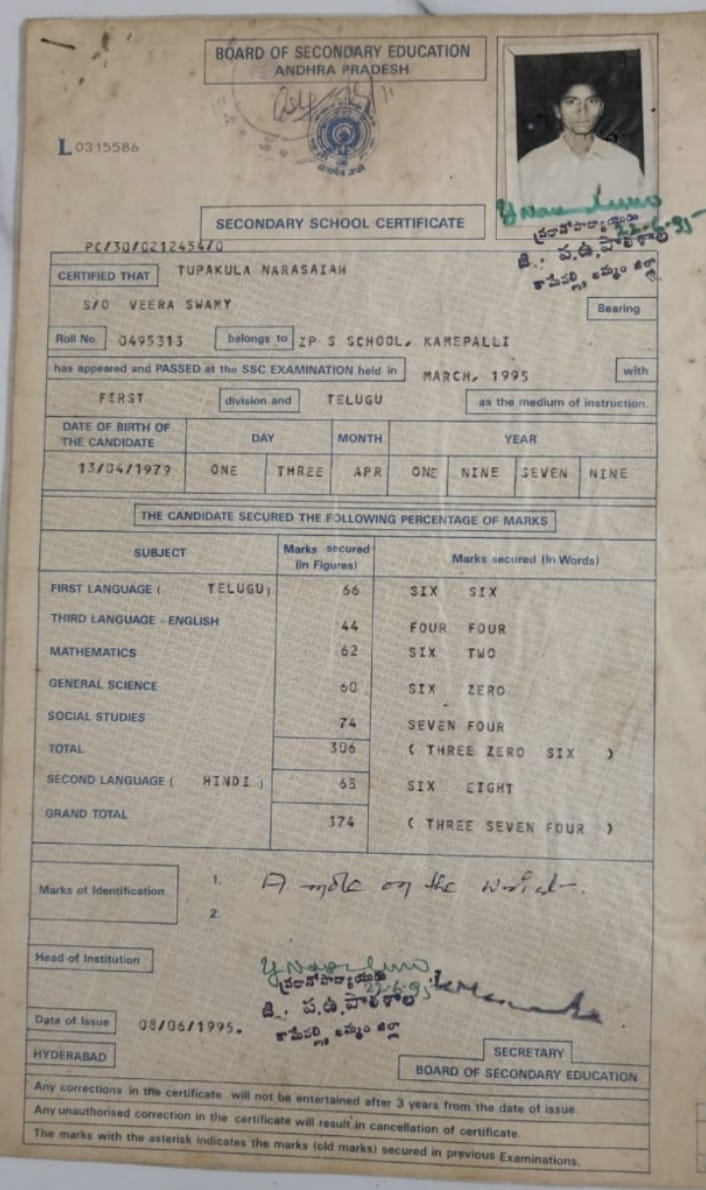 BOARD OF SECONDARY EDUCATION
ANDHRA PRADESH
L 0315586
SECONDARY SCHOOL CERTIFICATE
22-6-95
ప్రధానోపాధ్యాయుడు
జి. ప.ఉ.పాఠశాల
కామేపల్లి, ఖమ్మం జిల్లా
PC/30/0212454/0
CERTIFIED THAT TUPAKULA NARASAIAH
S/O VEERA SWAMY Bearing
Roll No. 0495313 belongs to ZP S SCHOOL, KAMEPALLI
has appeared and PASSED at the SSC EXAMINATION held in MARCH, 1995 with
FIRST division and TELUGU as the medium of instruction.
DATE OF BIRTH OF THE CANDIDATE DAY MONTH YEAR
13/04/1979 ONE THREE APR ONE NINE SEVEN NINE
THE CANDIDATE SECURED THE FOLLOWING PERCENTAGE OF MARKS
SUBJECT Marks secured (In Figures) Marks secured (In Words)
FIRST LANGUAGE ( TELUGU) 66 SIX SIX
THIRD LANGUAGE - ENGLISH 44 FOUR FOUR
MATHEMATICS 62 SIX TWO
GENERAL SCIENCE 60 SIX ZERO
SOCIAL STUDIES 74 SEVEN FOUR
TOTAL 306 ( THREE ZERO SIX )
SECOND LANGUAGE ( HINDI ) 68 SIX EIGHT
GRAND TOTAL 374 ( THREE SEVEN FOUR )
Marks of Identification 1. A mole on the
2.
Head of Institution
22-6-95
ప్రధానోపాధ్యాయుడు
జి. ప.ఉ.పాఠశాల
కామేపల్లి, ఖమ్మం జిల్లా
Date of Issue 08/06/1995.
HYDERABAD
SECRETARY
BOARD OF SECONDARY EDUCATION
Any corrections in the certificate will not be entertained after 3 years from the date of issue.
Any unauthorised correction in the certificate will result in cancellation of certificate.
The marks with the asterisk indicates the marks (old marks) secured in previous Examinations.